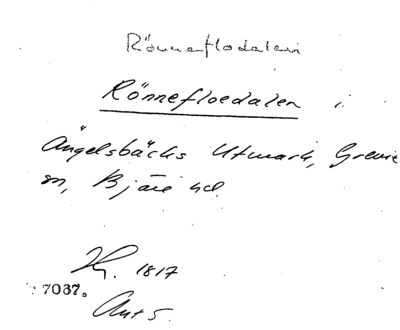 Rönneflodalen
Rönnefloedalen i
Ängelsbäcks Utmark, Grevie
sn, Bjäre hd
1817
7037.
Avt 5.